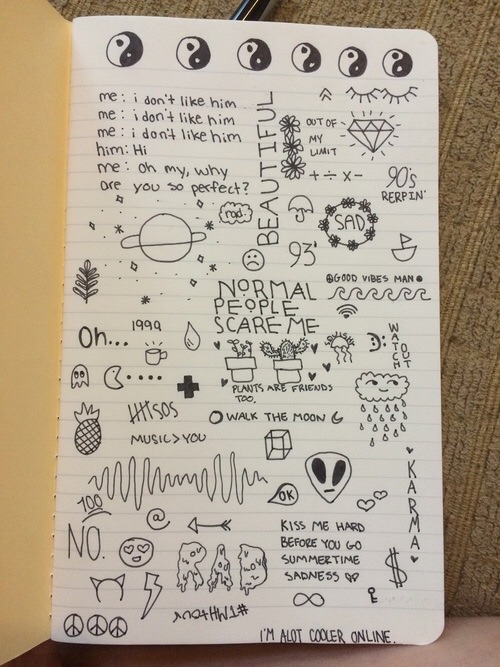 me: i don't like him
me: i don't like him
me: i don't like him
him: Hi
me: oh my, why
are you so perfect?
BEAUTIFUL
OUT OF
MY
LIMIT
+ ÷ × -
90's
RERPIN'
rad.
SAD
93'
NORMAL
PEOPLE
SCARE ME
GOOD VIBES MAN
Oh...
1999
WATCH
OUT
PLANTS ARE FRIENDS
TOO.
SOS
WALK THE MOON
MUSIC>YOU
KARMA
OK
100
@
NO.
KISS ME HARD
BEFORE YOU GO
SUMMERTIME
SADNESS
RAD
$
∞
#TMHTour
I'M ALOT COOLER ONLINE.